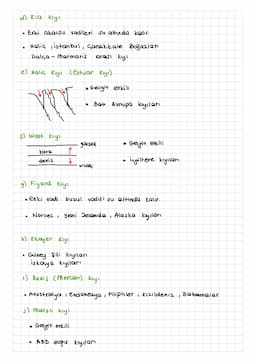 d) Ria Kıyı
• Eski akarsu vadileri su altında kalır.
• Haliç, İstanbul, Çanakkale Boğazları
Datça - Marmaris arası kıyı
e) Haliç Kıyı (Estuar Kıyı)
• Gelgit etkili
• Batı Avrupa kıyıları
f) Watt Kıyı
kara
deniz
• Gelgit etkili
• İngiltere kıyıları
g) Fiyord Kıyı
• Eski vadi buzul vadisi su altında kalır.
• Norveç, Yeni Zelanda, Alaska kıyıları
h) Skayer Kıyı
• Güney Şili kıyıları
İskoçya kıyıları
ı) Resif (Mercan) Kıyı
• Avustralya, Endonezya, Filipinler, Kızıldeniz, Bahamalar
j) Kıyı
• Gelgit etkili
• ABD doğu kıyıları